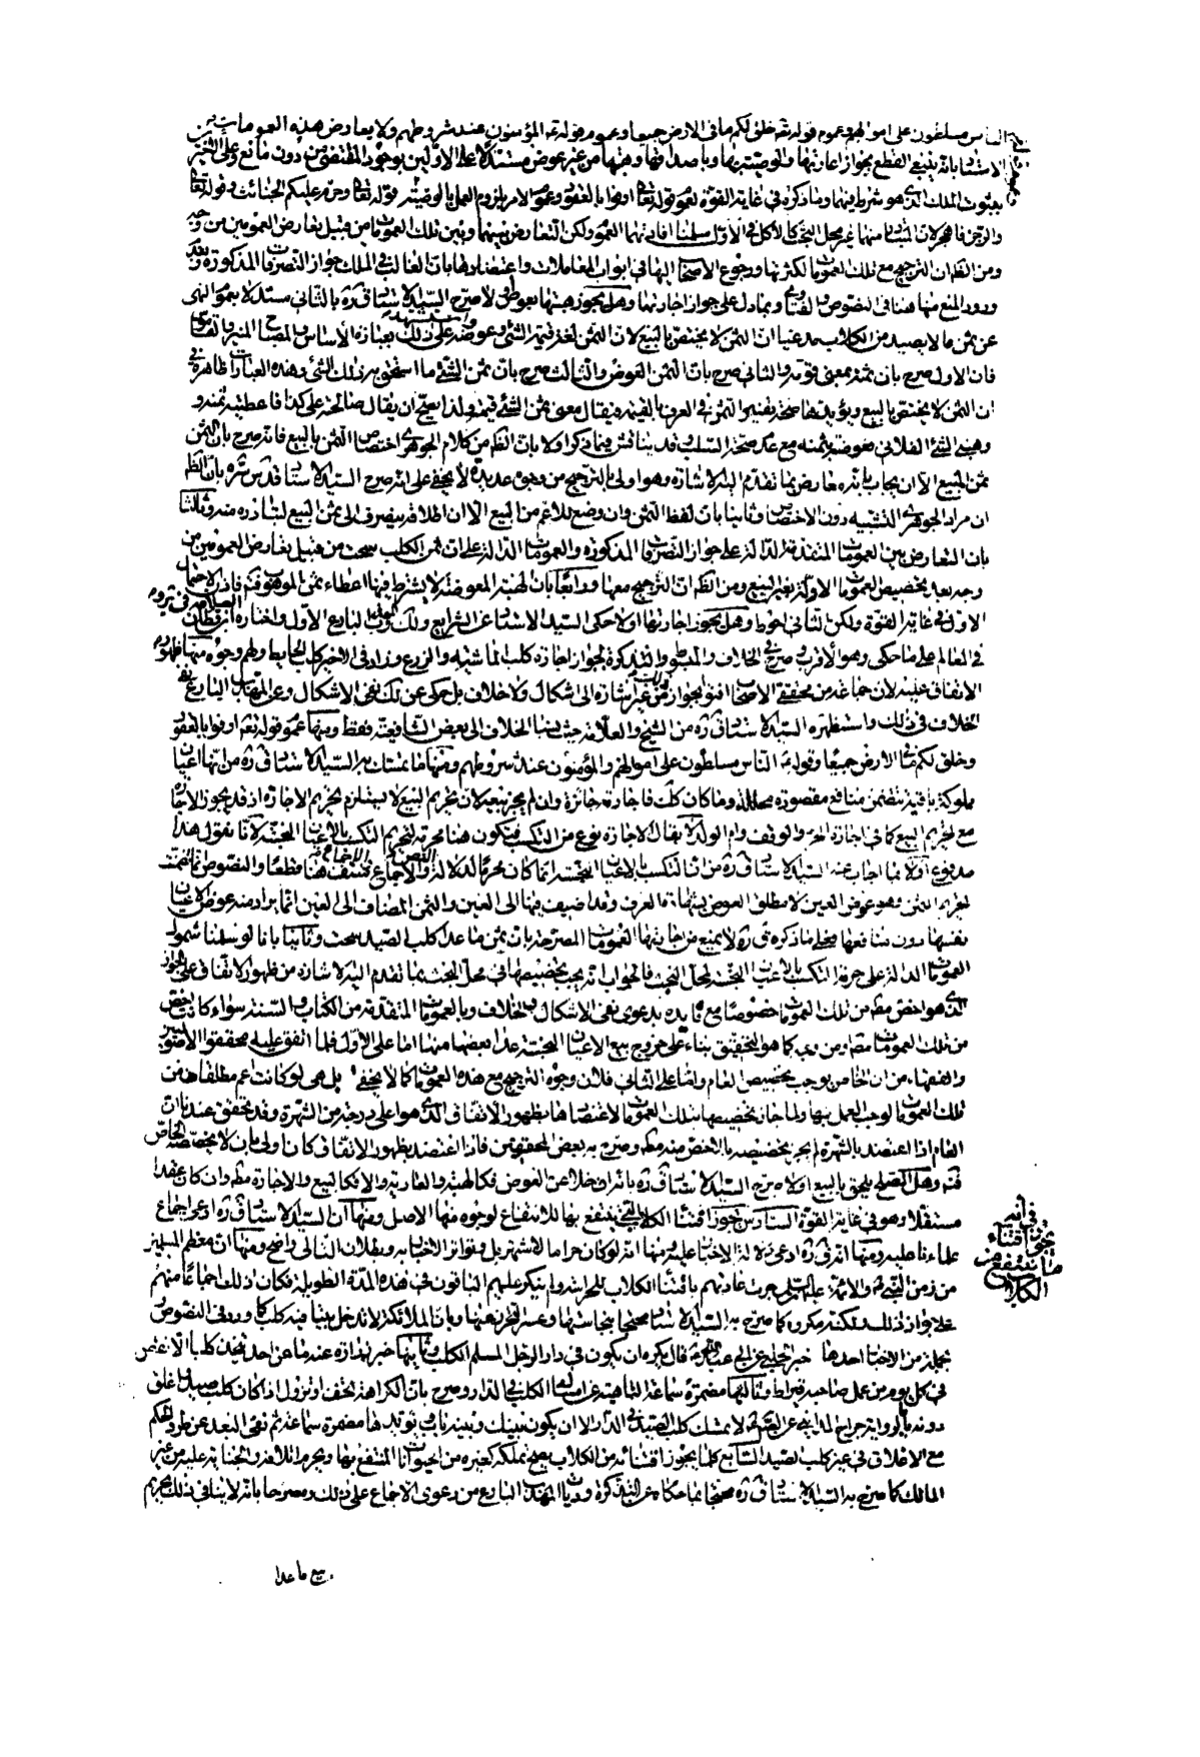 الناس مسلطون على اموالهم وعموم قوله تعه خلق لكم ما فى الارض جميعا وعموم قوله عه المؤمنون عند شروطهم ولا يعارض هذه العمومات
الاشتباه انه ينبغى القطع بجواز اعارتها والوصية بها وباصداقها وهبتها من غير عوض مستندا على الاولين بوجود المقتضى من دون مانع وعلى
بثبوت الملك الذى هو شرط فيهما وما ذكره فى غاية القوة لعموم قوله تعالى اوفوا بالعقود وعموم الامر بلزوم العمل بالوصية قوله تعالى وحرم عليكم الخبائث وقوله تعالى
والرجز فاهجر لان المتبادر منهما غير محل البحث كالاكل فى الاول سلمنا افادتهما العموم ولكن التعارض بينهما وبين تلك العمومات من قبيل تعارض العمومين من وجه
ومن الظاهر ان الترجيح مع تلك العمومات لكثرتها ورجوع الاصحاب اليها فى ابواب المعاملات واعتضادها بان الغالب فى الملك جواز التصرفات المذكورة
ورود المنع منها هنا فى النصوص والفتاوى وبما دل على جواز اجارتها وهل يجوز هبتها بعوض او لا صرح السيد الاستاد قدّه بالثانى مستدلا بعموم النهى
عن ثمن ما لا يصيد من الكلاب مدعيا ان الثمن لا يختص بالبيع لان الثمن لغة قيمة الشئ وعوضه على ذلك بعبارة الأساس والمصباح المنير
فان الاول صرح بان ثمنه بمعنى قومه والثانى صرح بان الثمن العوض والثالث صرح بان ثمن الشئ ما استحق به ذلك الشئ وهذه العبارات ظاهرة فى
ان الثمن لا يختص بالبيع ويؤيدها صحة تفسير الثمن فى العرف بالقيمة فيقال معنى ثمن الشئ قيمته ولذا يصح ان يقال صالحنى على كذا فاعطيته ثمنه و
وهبنى الشئ الفلانى فعوضته بثمنه مع عدم صحة السلب وقد يناقش فيما ذكر اولا بان الظاهر من كلام الجوهرى اختصاص الثمن بالبيع فانه صرح بان الثمن
ثمن المبيع الا ان يجاب بانه معارض بما تقدم اليه الاشارة وهو اولى بالترجيح من وجوه عديدة لا يخفى على انه صرح السيد الاستاد قدس سره بان الظاهر
ان مراد الجوهرى التشبيه دون الاختصاص وثانيا بان لفظ الثمن وان وضع للاعم من المبيع الا ان اطلاقه ينصرف الى ثمن المبيع لتبادره منه وثالثا
بان التعارض بين العمومات المتقدمة الدالة على جواز التصرفات المذكورة والعمومات الدالة على ان ثمن الكلب سحت من قبيل تعارض العمومين من
وجه بعد تخصيص العمومات الاولة بغير البيع ومن الظاهر ان الترجيح معها ورابعا بان الهبة المعوضة لا يشترط فيها اعطاء ثمن الموهوب فاذن الاحتمال
الاول فى غاية القوة ولكن الثانى احوط وهل يجوز اجارتها او لا حكى السيد الاستاد عن الشرايع ولك والمهذب البارع الاول واختاره
فى العالم على ما حكى وهو الاقرب وصرح فى الخلاف والمبسوط والتذكرة بجواز اجارة كلب الماشية والزرع وزاد فى الاخير كلب الحايط ولهم وجوه منها ظهور
الاتفاق عليه لان جماعة من محققى الاصحاب افتوا بجواز من غير اشارة الى اشكال ولا خلاف بل حكى عن لك نفى الاشكال وعن المهذب البارع نفى
الخلاف فى ذلك واستظهره السيد الاستاد قدّه من الشيخ والعلامة حيث نسبا الخلاف الى بعض الشافعية فقط ومنها عموم قوله تعه اوفوا بالعقود
وخلق لكم ما فى الارض جميعا وقوله عه الناس مسلطون على اموالهم والمؤمنون عند شروطهم ومنها ما تمسك به السيد الاستاد قدّه من انها اعيان
مملوكة باقية يتضمن منافع مقصودة محللة وما كان كذلك فاجارته جائزة وان لم يجز بيعه لان تحريم البيع لا يستلزم تحريم الاجارة اذ قد يجوز الاجارة
مع تحريم البيع كما فى اجارة الحر والوقف وام الولد لا يقال الاجارة نوع من التكسب فيكون هنا محرمة لتحريم التكسب بالاعيان النجسة لانا نقول هذا
مدفوع اولا بما اجاب عنه السيد الاستاد قدّه من ان التكسب بالاعيان النجسة انما كان محرما لدلالة النص والاجماع والاجماع منتف هنا قطعا والنصوص انما تضمنت
تحريم الثمن وهو عوض العين لا مطلق العوض بشهادة العرف وقد اضيف فيها الى العين والثمن المضاف الى العين انما يراد منه عوض الاعيان
نفسها دون منافعها فعلى ما ذكره قدّه لا يمنع من اجارتها العمومات المصرحة بان ثمن ما عدا كلب الصيد سحت وثانيا بانا لو سلمنا شمول
العمومات الدالة على حرمة التكسب بالاعيان النجسة لمحل البحث فالجواب انه يجب تخصيصها فى محل البحث بما تقدم اليه الاشارة من ظهور الاتفاق على الجواز
الذى هو اخص مطلقا من تلك العمومات خصوصا مع تأيده بدعوى نفى الاشكال والخلاف وبالعمومات المتقدمة من الكتاب والسنة سواء كانت اخص
من تلك العمومات مطلقا او من وجه كما هو التحقيق بناء على خروج بيع الاعيان النجسة عدا بعضها منها اما على الاول فلما اتفق عليه محققو الاصوليين
والفقهاء من ان الخاص يوجب تخصيص العام واما على الثانى فلان وجوه الترجيح مع هذه العمومات كما لا يخفى بل هى لو كانت اعم مطلقا من
تلك العمومات لوجب العمل بها ولما جاز تخصيصها بتلك العمومات لاعتضادها بظهور الاتفاق الذى هو اعلى درجة من الشهرة وقد تحقق عندنا ان
العام اذا اعتضد بالشهرة لم يجز تخصيصه بالاخص منه مطلقا وصرح به بعض المحققين فاذا اعتضد بظهور الاتفاق كان اولى بان لا يخصصه الخاص
فتم وهل الصلح يلحق بالبيع او لا صرح السيد الاستاد قدّه بانه ان خلا عن العوض فكالهبة والعارية والا فكالبيع والاجارة مطلقا وان كان عقدا
مستقلا وهو فى غاية القوة السادس يجوز اقتناء الكلاب التى ينتفع بها للانتفاع لوجوه منها الاصل ومنها ان السيد الاستاد قدّه ادعى اجماع
علمائنا عليه ومنها انه قدّه ادعى دلالة الاخبار عليه ومنها انه لو كان حراما لاشتهر بل وتواتر الاخبار به وبطلان التالى واضح ومنها ان معظم المسلمين
من زمن النبى ص والائمة عليهم السلم جرت عادتهم باقتناء الكلاب للحراسة ولم ينكر عليهم الباقون فى هذه المدة الطويلة فكان ذلك اجماعا منهم
على جواز ذلك ولكنه مكروه كما صرح به السيد الاستاد محتجا بنجاستها وعسر التحرز عنها وبان الملائكة لا تدخل بيتا فيه كلب كما ورد فى النصوص
بجملة من الاخبار احدها خبر الحلبى عن ابى عبد الله قال يكره ان يكون فى دار الرجل المسلم الكلب وثانيها خبر زرارة عنه ما من احد يتخذ كلبا الا نقص
فى كل يوم من عمل صاحبه قيراط وثالثها مضمرة سماعة الناهية عن امساك الكلب فى الدار وصرح بان الكراهة تخف او تزول اذا كان كلب صيد او اغلق
دونه باب لرواية جراح المدائنى عن الصادق لا تمسك كلب الصيد فى الدار الا ان يكون بينك وبينه باب ويؤيدها مضمرة سماعة ثم نفى البعد عن طرد الحكم
مع الاغلاق فى غير كلب الصيد السابع كلما يجوز اقتنائه من الكلاب يصح تملكه كغيره من الحيوانات المنتفع بها ويحرم اتلافه والجناية عليه من غير
المالك كما صرح به السيد الاستاد قدّه محتجا بما حكاه عن التذكرة والمهذب البارع من دعوى الاجماع على ذلك ومصرحا بانه لا ينافى ذلك تحريم
فى انه
يجوز اقتناء
ما ينتفع من
الكلاب
بيع ما عدا